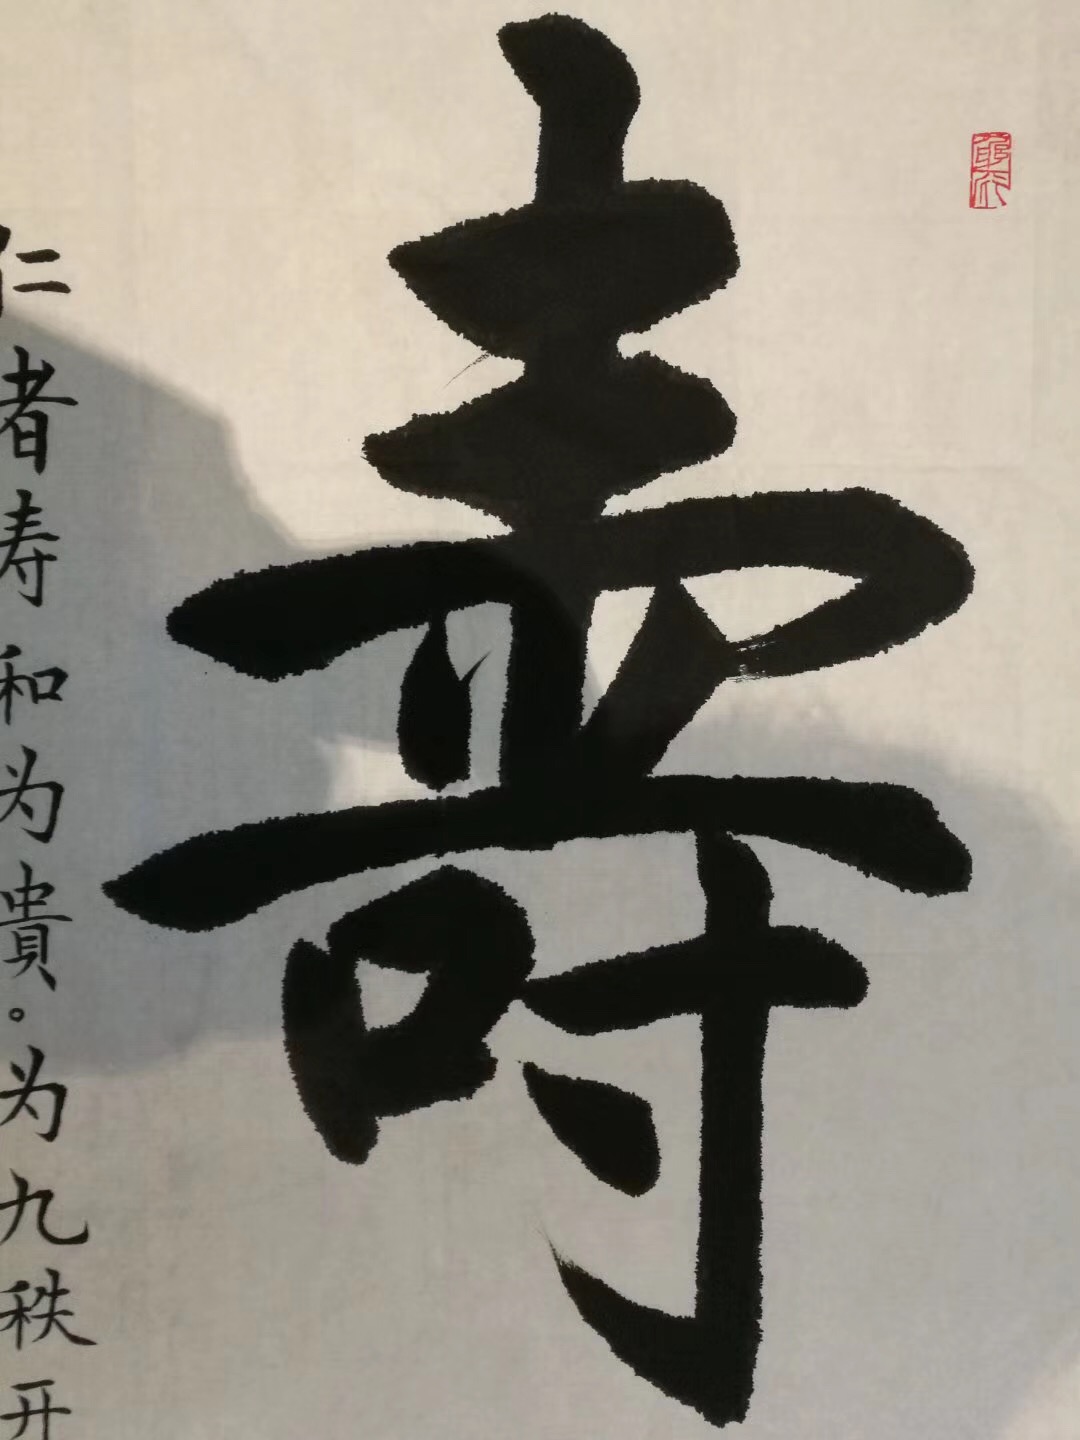 壽
仁者寿和为貴。为九秩开